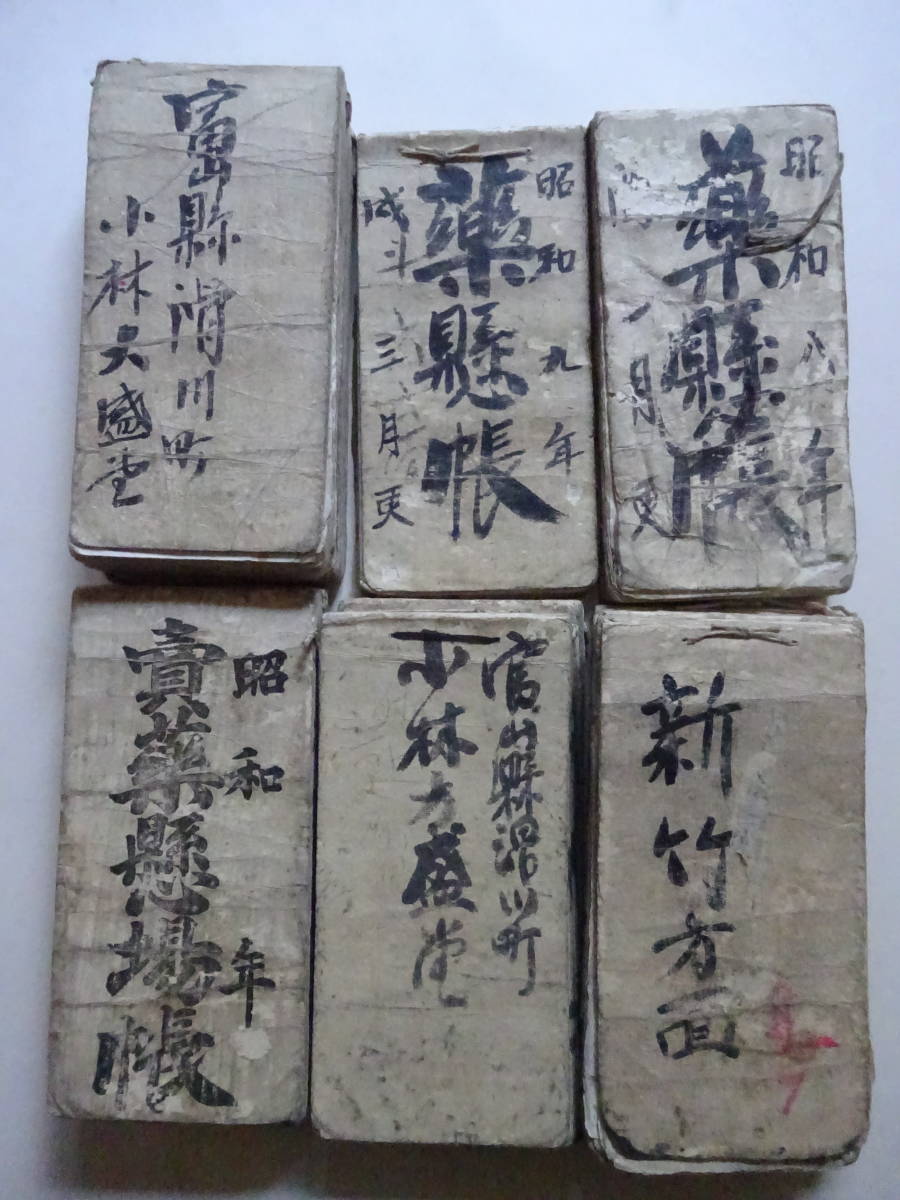 富縣滑川町
小林大盛堂
昭和九年
藥懸帳
三月更
昭和八年
藥懸帳
八月更
昭和 年
賣藥懸場帳
富山縣滑川町
小林大盛堂
新竹方面